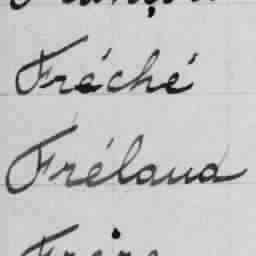 Fréché
Frélaud